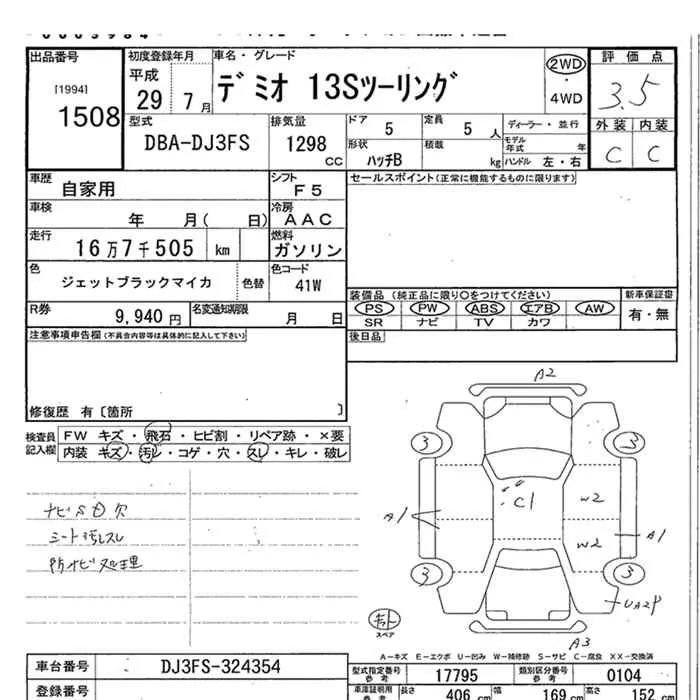 出品番号
[1994]
1508
初度登録年月
平成
29 7月
車名・グレード
デミオ 13Sツーリング
2WD
・
4WD
評価点
3.5
外装 内装
C C
型式
DBA-DJ3FS
排気量
1298
CC
ドア 5
定員 5 人
形状
ハッチB
積載 kg
ディーラー・並行
モデル年式 年
ハンドル 左・右
車歴
自家用
シフト
F5
車検
年 月( 日)
冷房
AAC
走行
16万7千505 km
燃料
ガソリン
色
ジェットブラックマイカ
色替
色コード
41W
R券
9,940 円
名変通知期限
月 日
セールスポイント(正常に機能するものに限ります)
装備品(純正品に限り○をつけてください)
PS PW ABS エアB AW
SR ナビ TV カワ
新車保証書
有・無
後日品
注意事項申告欄(不具合内容等は具体的に記入して下さい)
修復歴 有〔箇所 〕
検査員記入欄
FW キズ・飛石・ヒビ割・リペア跡・×要
内装 キズ・汚レ・コゲ・穴・スレ・キレ・破レ
ナビSD欠
シート汚レスレ
A2
3 3
C1
W2
A1
W2
A1
3 3
UA2P
A3
スペア
A-キズ E-エクボ U-凹み W-補修跡 S-サビ C-腐食 XX-交換済
車台番号
DJ3FS-324354
登録番号
型式指定番号
参考
17795
類別区分番号
参考
0104
車庫証明用
参考
長さ 406 cm
幅 169 cm
高さ 152 cm